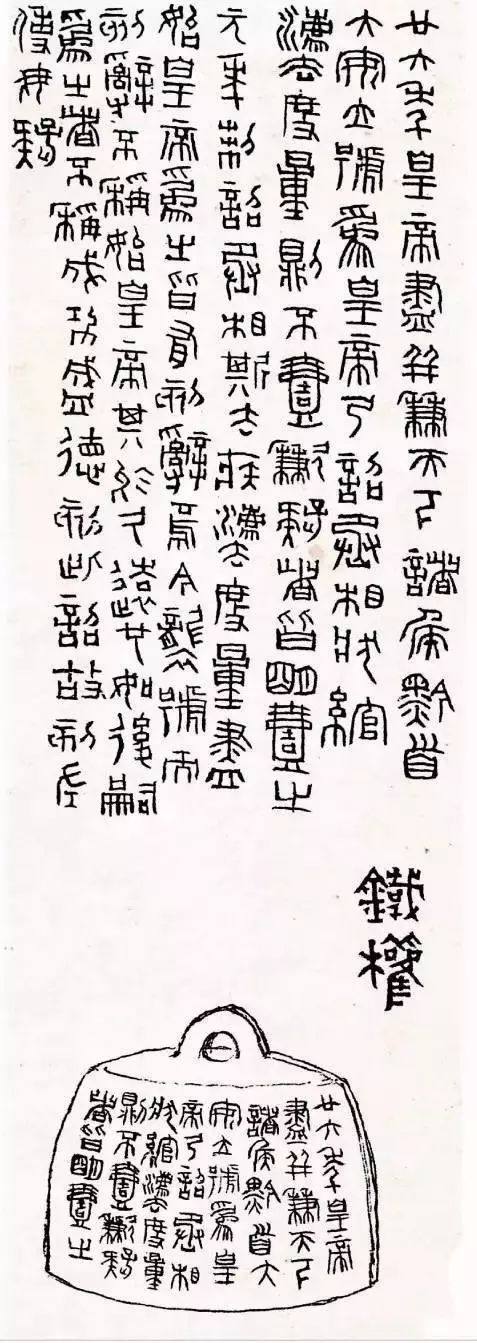 廿六年皇帝盡并兼天下諸侯黔首
大安立號為皇帝乃詔丞相狀綰
灋度量則不壹歉疑者皆明壹之
元年制詔丞相斯去疾灋度量盡
始皇帝為之皆有刻辭焉今襲號而
刻辭不稱始皇帝其於久遠也如後嗣
為之者不稱成功盛德刻此詔故刻左
使毋疑
鐵權
廿六年皇帝
盡并兼天下
諸侯黔首大
安立號為皇
帝乃詔丞相
狀綰灋度量
則不壹歉疑
者皆明壹之